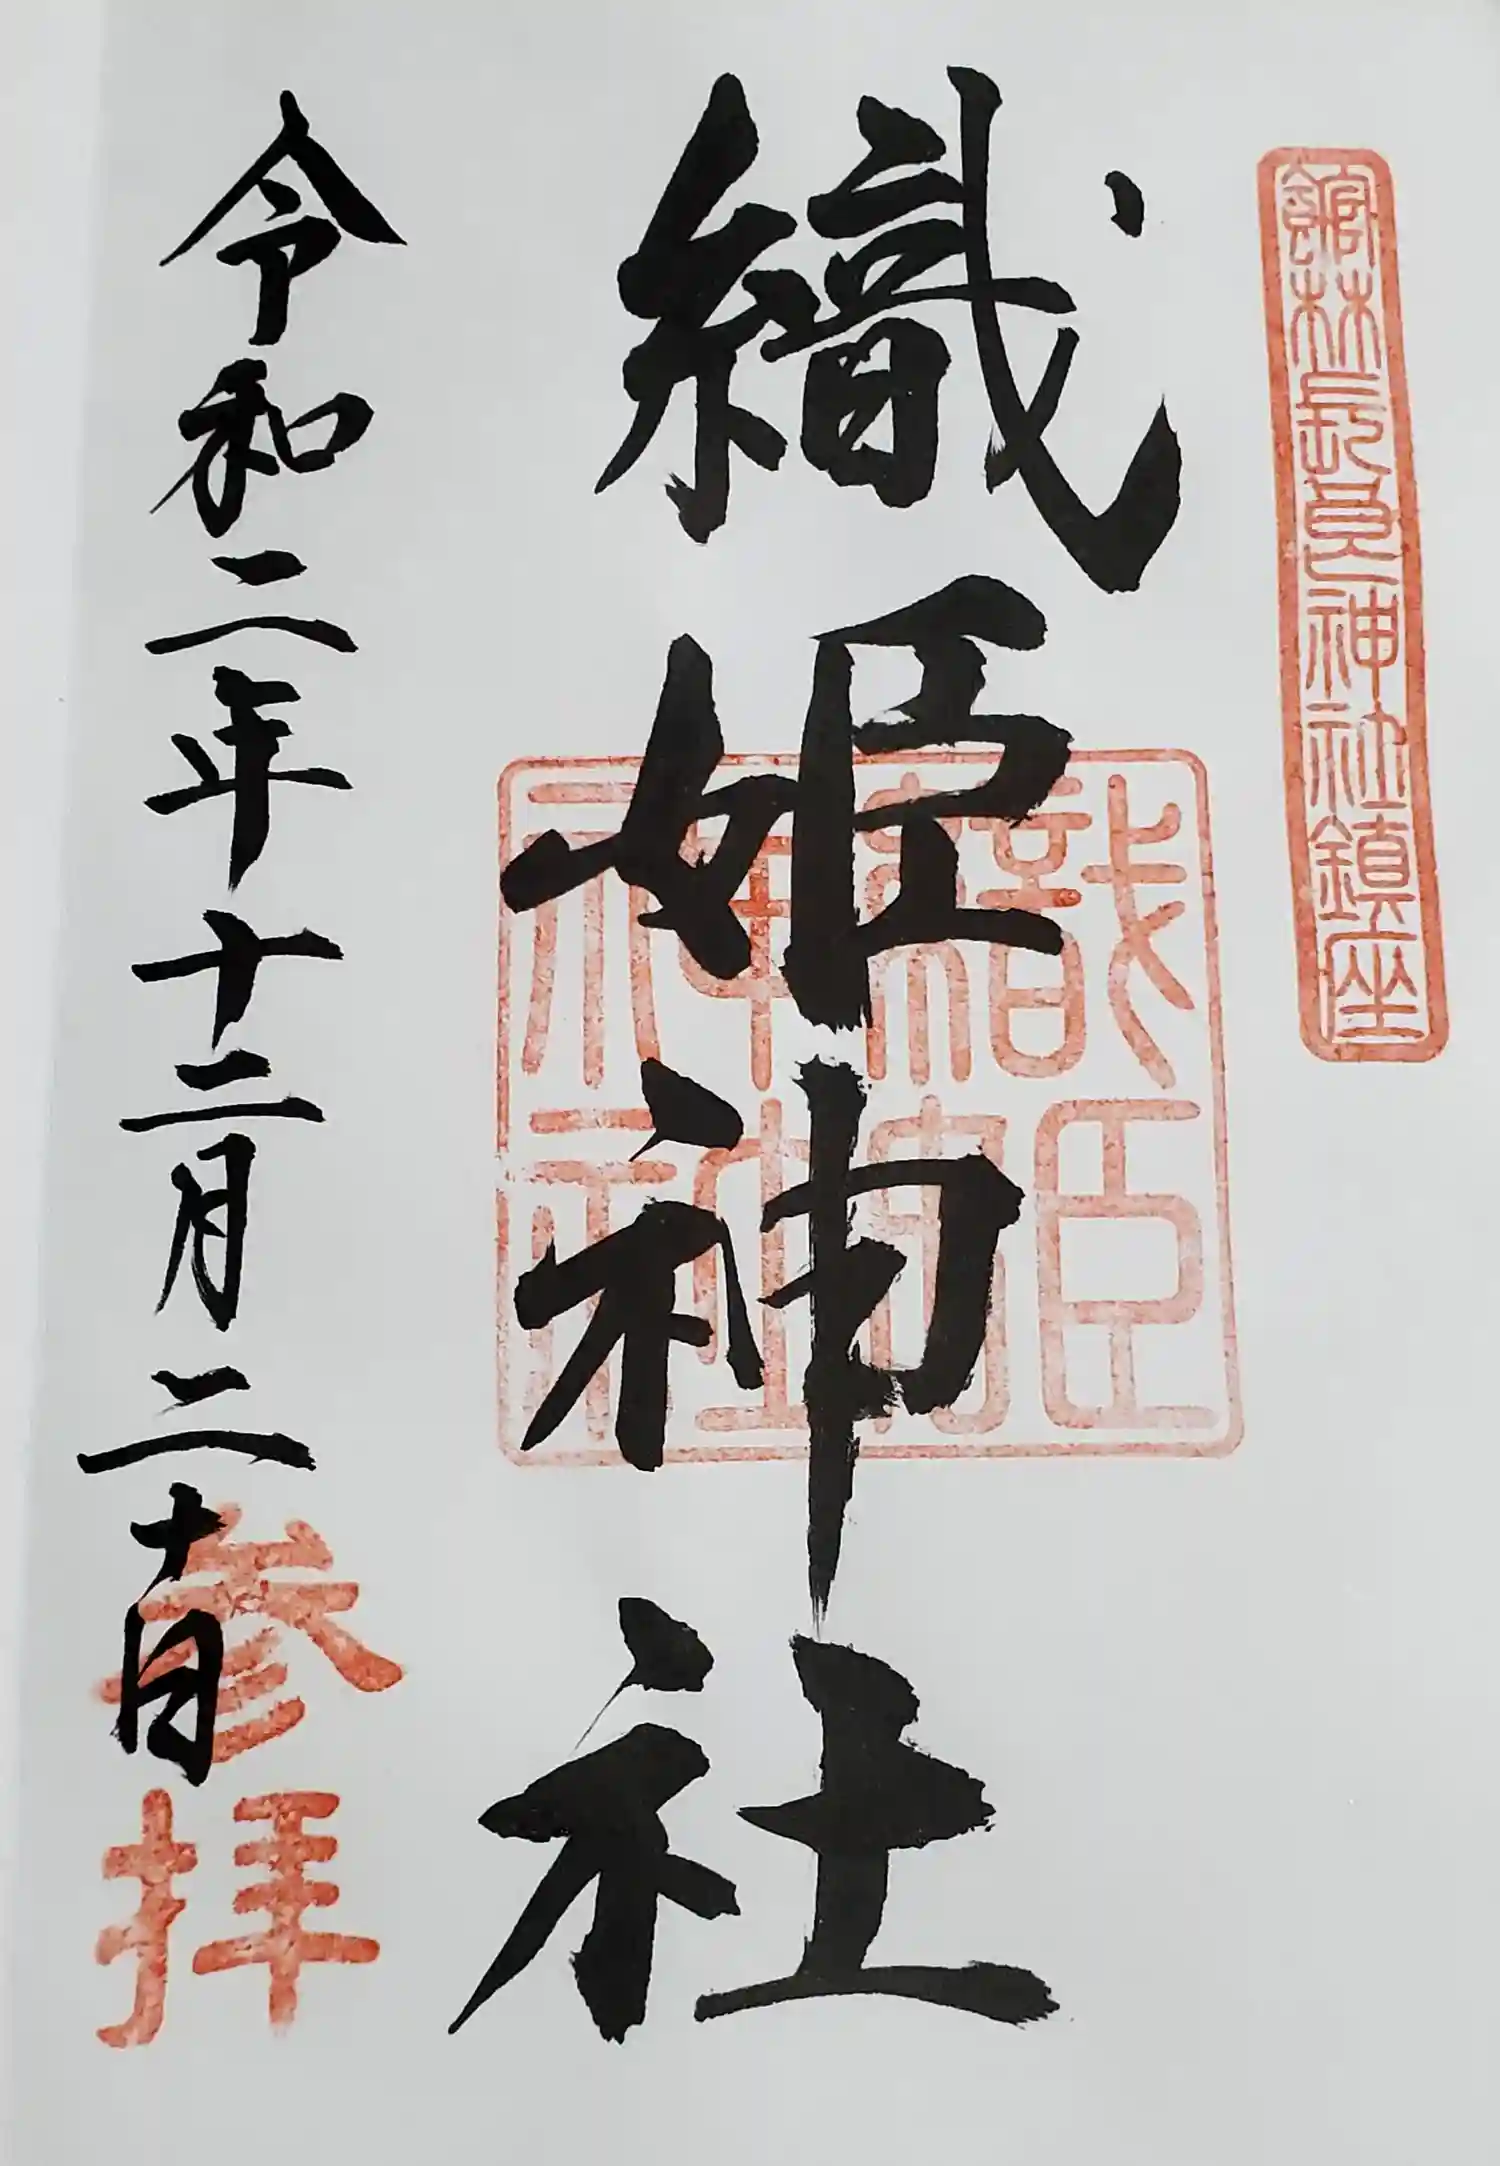 館林長良神社鎮座
織姫神社
織姫神社
令和二年十二月二十日
参拝